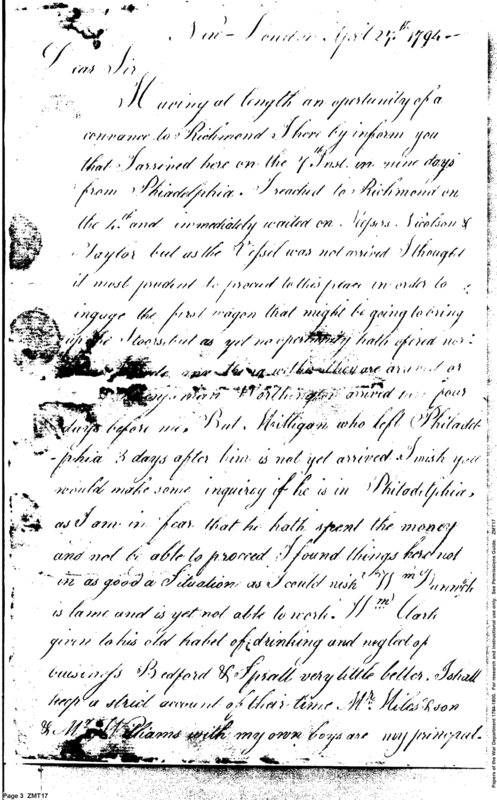 New-London April 27th 1794-
Dear Sir
Having at length an oportunity of a
convance to Richmond I here by inform you
that I arrived here on the 7th Inst. in nine days
from Phiadelphia. I reached to Richmond on
the 4th and immediately waited on Messrs Nicolson &
Taylor but as the Vessel was not arrived I thought
it most prudent to proceed to this peace in order to
ingage the first wagon that might be going to bring
up the Stoors, but as yet no oportunity hath ofered nor
they are arived or
Worthington arrived four
days before me, But Milligan who left Philadel
phia 3 days after him is not yet arrived I wish you
would make some inquirey if he is in Philadelphia,
as I am in fear that he hath spent the money
and not be able to proceed I found things here not
in as good a Situation as I could wish Wm
is lame and is yet not able to work. Wm Clark
given to his old habet of drinking and neglect of
buisiness Bedford & Spratt very little better. I shall
keep a strict account of their time Mr Miles & son
& Mr Williams with my own boys are my principal-
Page 3 ZMT17
Papers of the War Department 1784-1800. For research and instructional use only. See Permissions Guide. ZMT17